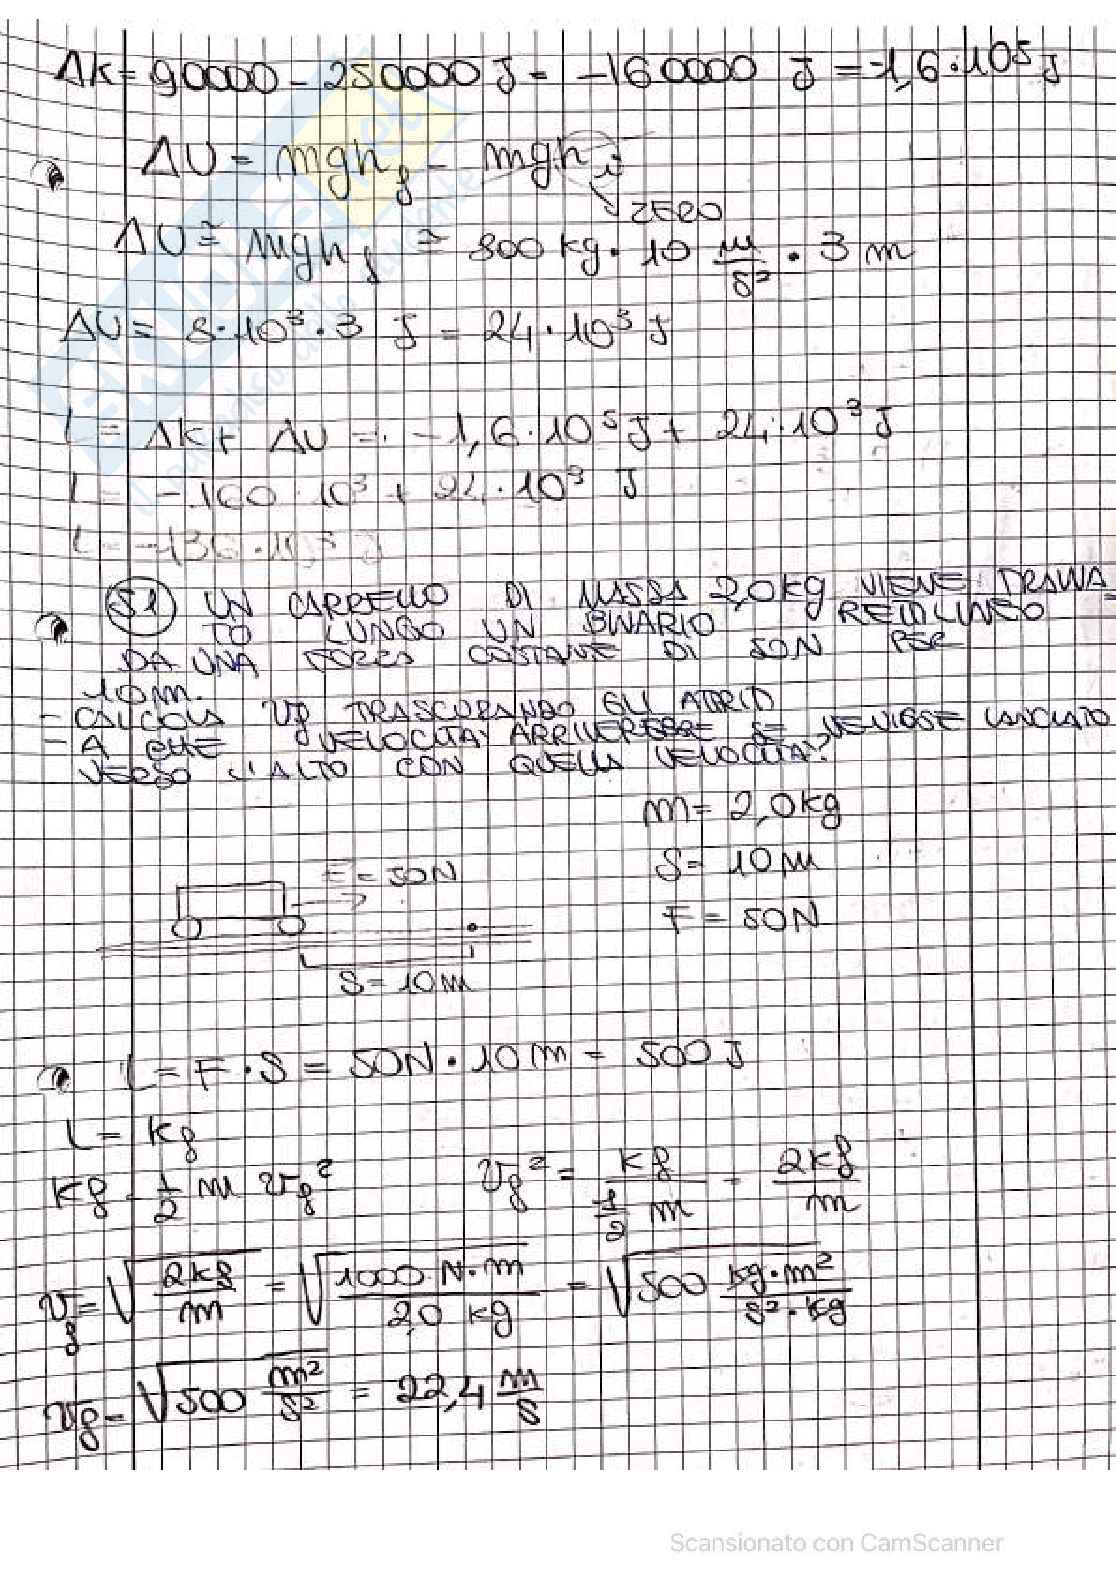 ΔK = 90000 - 250000 J = -160000 J = -1,6·10⁵ J
ΔU = mghf - mghi
ZERO
ΔU = mghf = 800 kg · 10 m/s² · 3 m
ΔU = 8·10³·3 J = 24·10³ J
L = ΔK + ΔU = -1,6·10⁵ J + 24·10³ J
L = -160·10³ + 24·10³ J
L = -136·10³ J
51 UN CARRELLO DI MASSA 2,0kg VIENE TRAINA
TO LUNGO UN BINARIO RETILINEO
DA UNA FORZA COSTANTE DI 50N PER
10m.
- CALCOLA vf TRASCURANDO GLI ATTRITI
- A CHE VELOCITA' ARRIVEREBBE SE VENISSE LANCIATO
VERSO L'ALTO CON QUELLA VELOCITA'?
m = 2,0kg
F = 50N
S = 10 m
F = 50N
S = 10 m
L = F·S = 50N·10 m = 500 J
L = Kf
Kf = 1/2 m vf² vf² = Kf / 1/2 m = 2Kf / m
vf = √2Kf/m = √1000 N·m / 2,0 kg = √500 kg·m² / s²·kg
vf = √500 m²/s² = 22,4 m/s
Scansionato con CamScanner